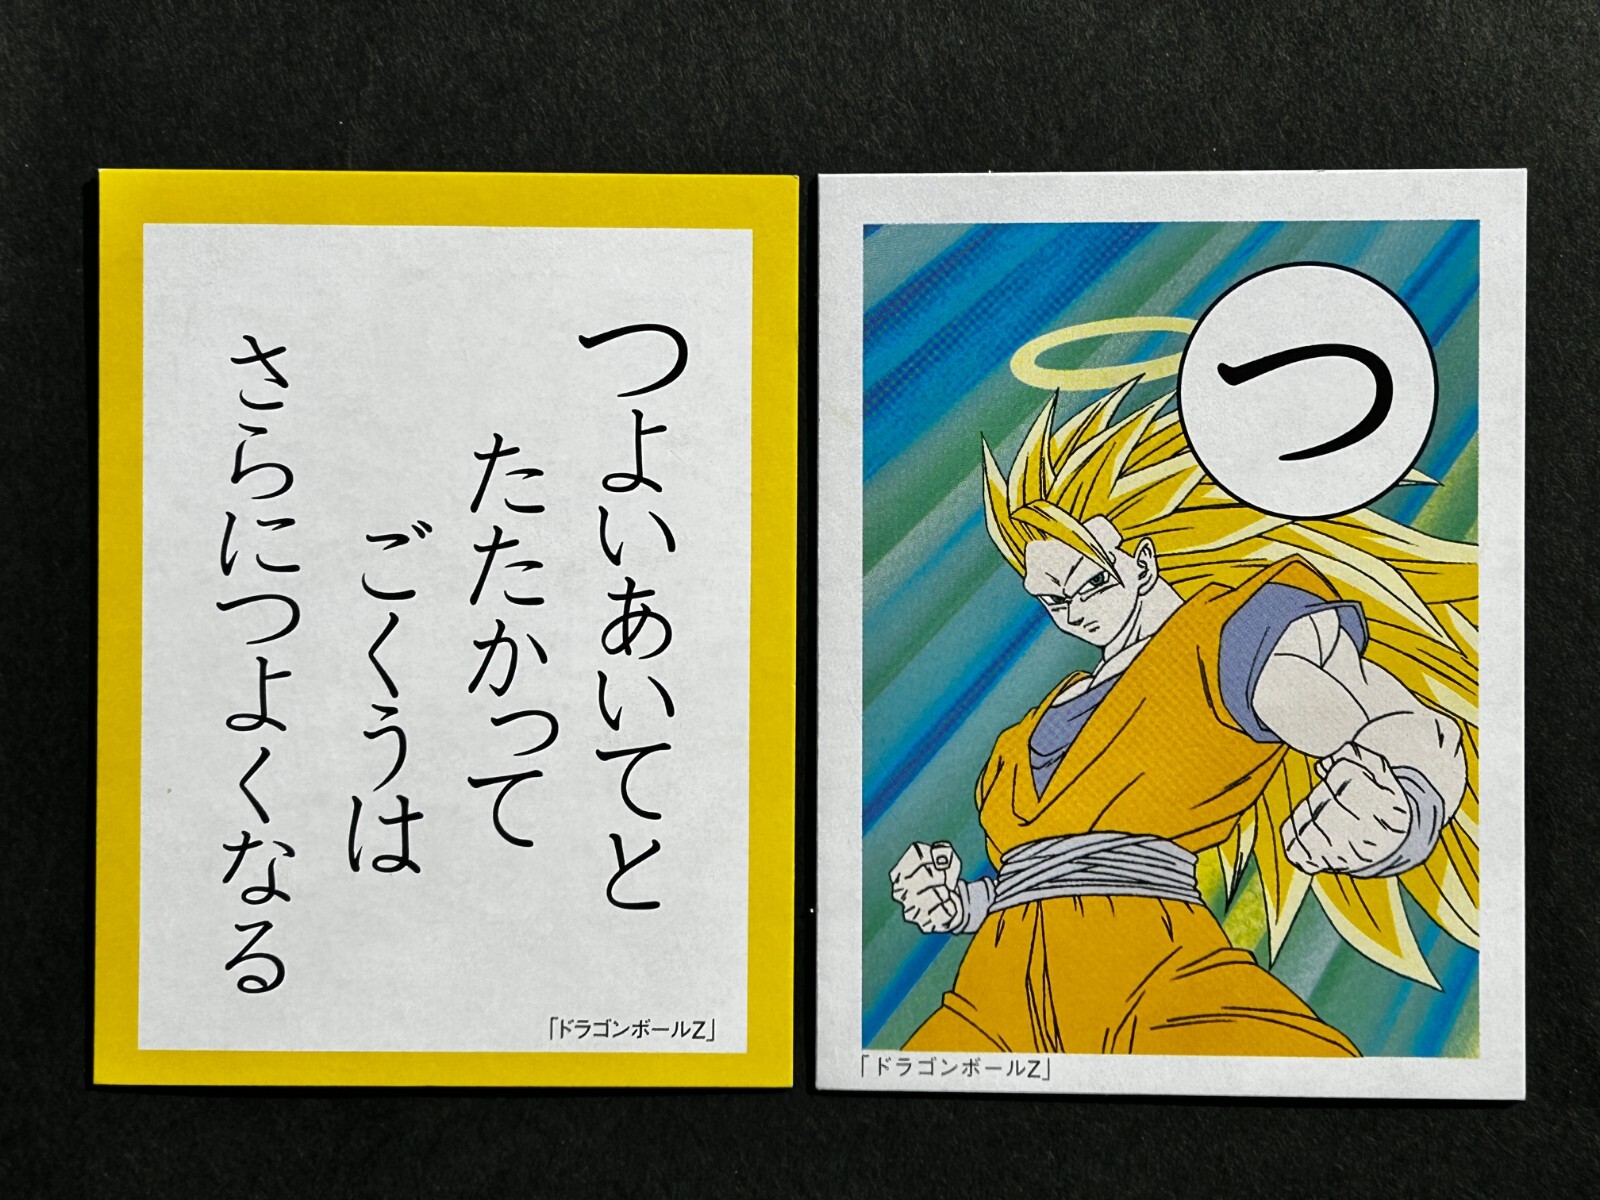 つよいあいてと
たたかって
ごくうは
さらにつよくなる
「ドラゴンボールZ」
つ
「ドラゴンボールZ」